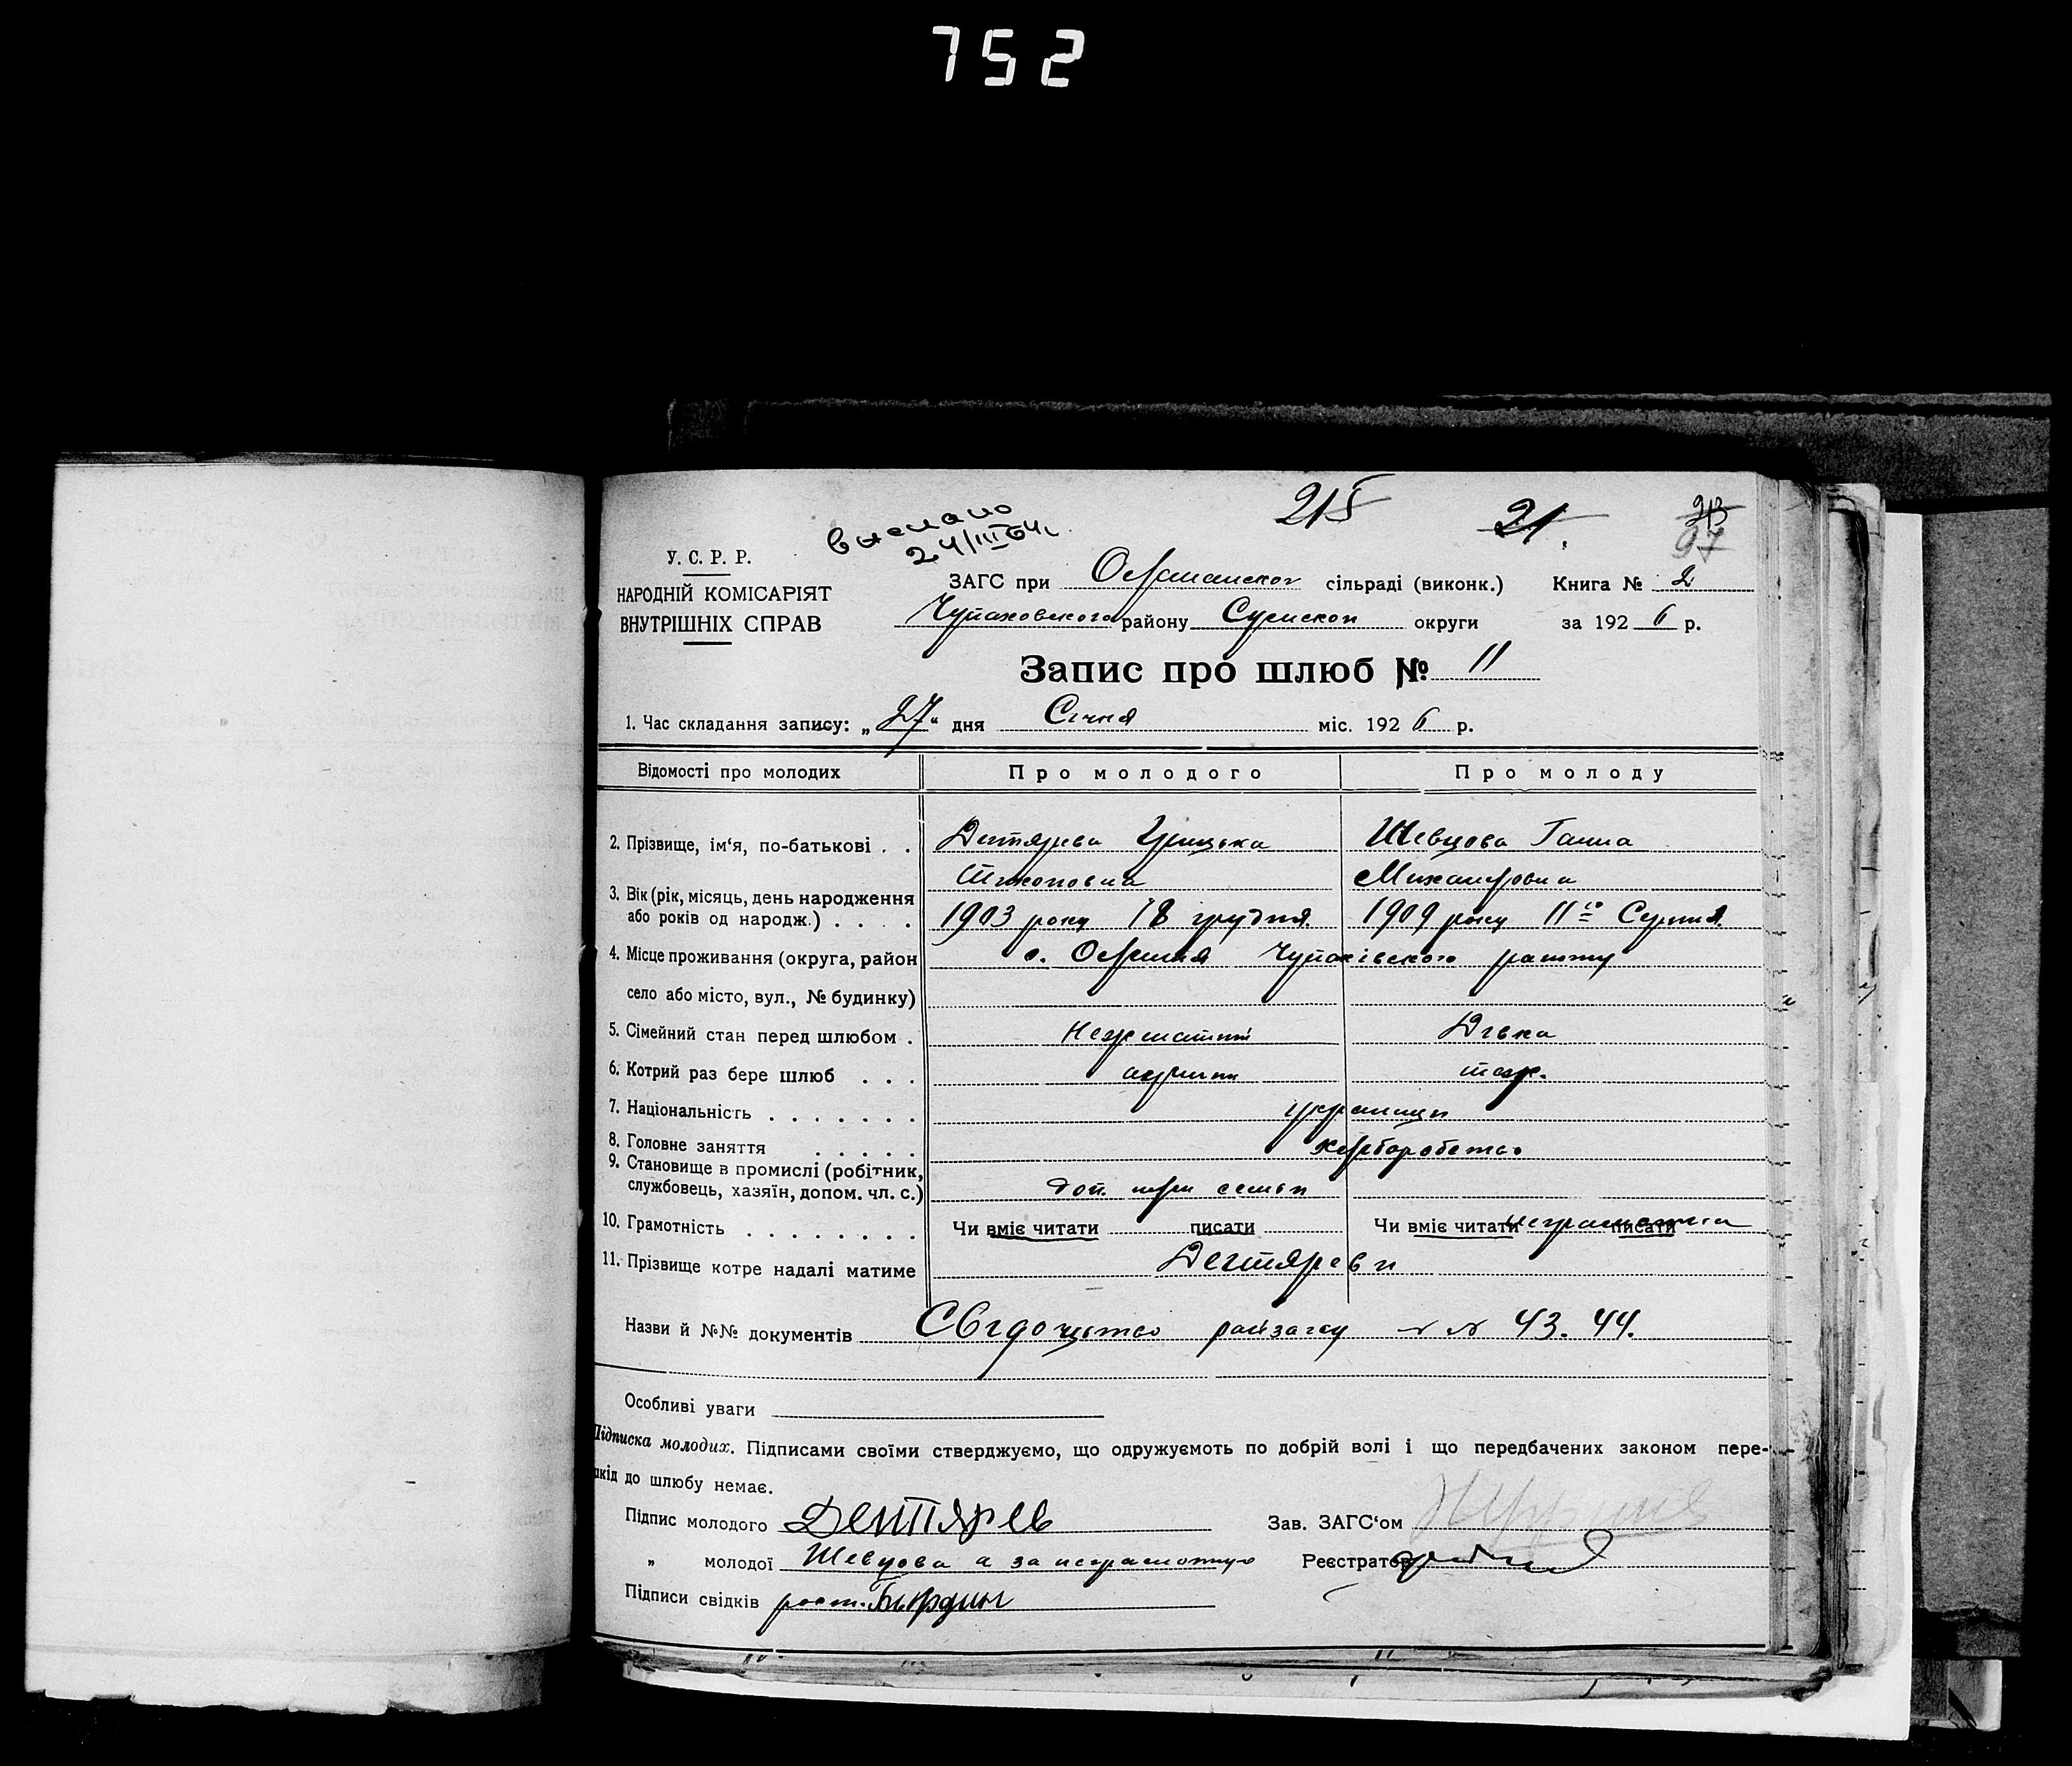 752
215 21. 213
97
вислано
24/III 64
У. С. Р. Р.
НАРОДНІЙ КОМІСАРІЯТ
ВНУТРІШНІХ СПРАВ
ЗАГС при сільраді (виконк.) Книга № 2
Чупаховского району Сумскои округи за 1926 р.
Запис про шлюб № 11
1. Час складання запису: „27“ дня Січня міс. 1926 р.
Відомості про молодих Про молодого Про молоду
2. Прізвище, ім‘я, по-батькові . . Грицька Шевцова Ганна
Михайловна
3. Вік (рік, місяць, день народження
або років од народж.) . . . . 1903 року 18 грудня. 1909 року 11го Серпня.
4. Місце проживання (округа, район с. Чупахівского району
село або місто, вул., № будинку)
5. Сімейний стан перед шлюбом . Нежонатий Дівка
6. Котрий раз бере шлюб . . .
7. Національність . . . . . . . українци
8. Головне заняття . . . . . хлѣборобство
9. Становище в промислі (робітник,
службовець, хазяїн, допом. чл. с.) доп. при семьи
10. Грамотність . . . . . . . . Чи вміє читати писати Чи вміє читати писати неграмотна
11. Прізвище котре надалі матиме Дегтяреви
Назви й №№ документів Свідоцьтво райзагсу № № 43. 44.
Особливі уваги
Підписка молодих. Підписами своїми стверджуємо, що одружуємоть по добрій волі і що передбачених законом пере-
шкід до шлюбу немає.
Підпис молодого Дегтярев Зав. ЗАГС‘ом
„ молодої Шевцова а за неграмотную Реєстратор
Підписи свідків